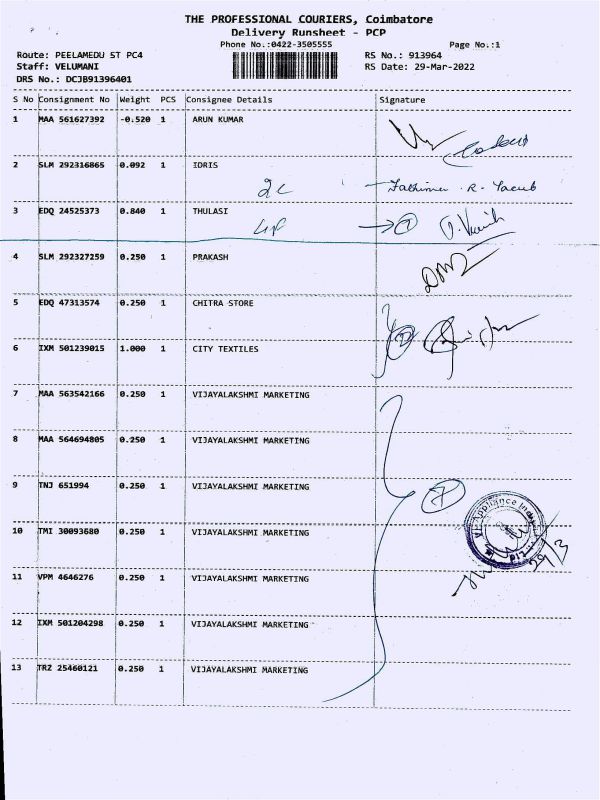 THE PROFESSIONAL COURIERS, Coimbatore
Delivery Runsheet - PCP
Phone No.:0422-3505555 Page No.:1
Route: PEELAMEDU ST PC4 RS No.: 913964
Staff: VELUMANI RS Date: 29-Mar-2022
DRS No.: DCJB91396401
S No Consignment No Weight PCS Consignee Details Signature
1 MAA 561627392 -0.520 1 ARUN KUMAR
2 SLM 292316865 0.092 1 IDRIS
Fathima R. Yacub
3 EDQ 24525373 0.840 1 THULASI
4 SLM 292327259 0.250 1 PRAKASH
5 EDQ 47313574 0.250 1 CHITRA STORE
6 IXM 501239015 1.000 1 CITY TEXTILES
7 MAA 563542166 0.250 1 VIJAYALAKSHMI MARKETING
8 MAA 564694805 0.250 1 VIJAYALAKSHMI MARKETING
9 TNJ 651994 0.250 1 VIJAYALAKSHMI MARKETING
7
10 TMI 30093680 0.250 1 VIJAYALAKSHMI MARKETING
29/3
11 VPM 4646276 0.250 1 VIJAYALAKSHMI MARKETING
12 IXM 501204298 0.250 1 VIJAYALAKSHMI MARKETING
13 TRZ 25460121 0.250 1 VIJAYALAKSHMI MARKETING